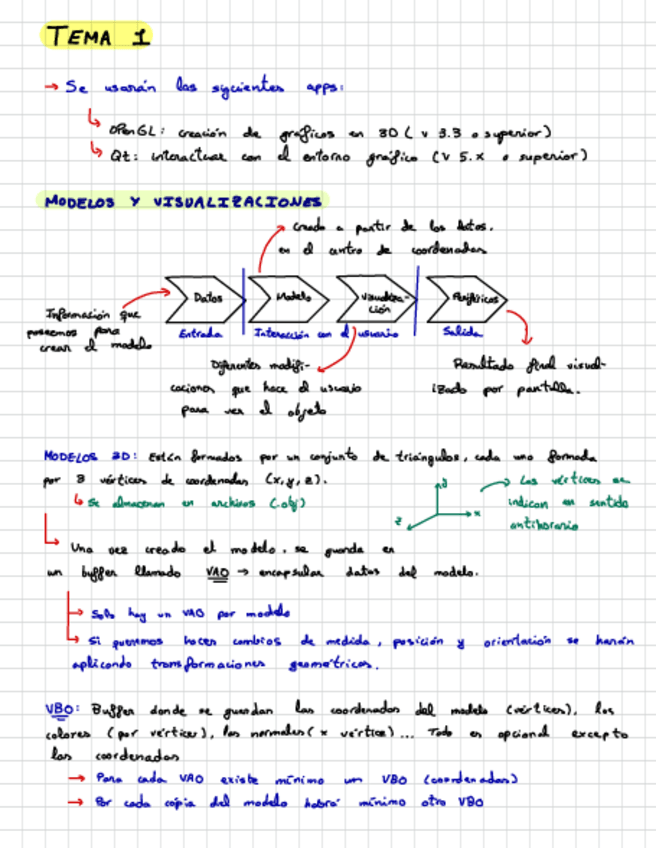 TEMA 1
→ Se usarán las siguientes apps:
↳ OPenGL: creación de gráficos en 3D ( v 3.3 o superior)
↳ Qt: interactuar con el entorno gráfico (v 5.x o superior)
MODELOS Y VISUALIZACIONES
creado a partir de los datos.
en el centro de coordenadas
Datos
Modelo
Visualiza-
ción
Periféricos
Información que
poseemos para
crear el modelo
Entrada
Interacción con el usuario
Salida
Diferentes modifi-
caciones que hace el usuario
para ver el objeto
Resultado final visual-
izado por pantalla.
MODELOS 3D: Están formados por un conjunto de triángulos, cada uno formada
por 3 vértices de coordenadas (x,y,z).
↳ Se almacenan en archivos (.obj)
y
x
z
→ Los vértices se
indican en sentido
antihorario
↳ Una vez creado el modelo, se guarda en
un buffer llamado VAO → encapsular datos del modelo.
→ Solo hay un VAO por modelo
↳ Si queremos hacer cambios de medida, posición y orientación se harán
aplicando transformaciones geométricas.
VBO: Buffer donde se guardan las coordenadas del modelo (vértices), los
colores (por vértice), las normales ( x vértice)... Todo es opcional excepto
las coordenadas
→ Para cada VAO existe mínimo un VBO (coordenadas)
→ Por cada copia del modelo habrá mínimo otro VBO